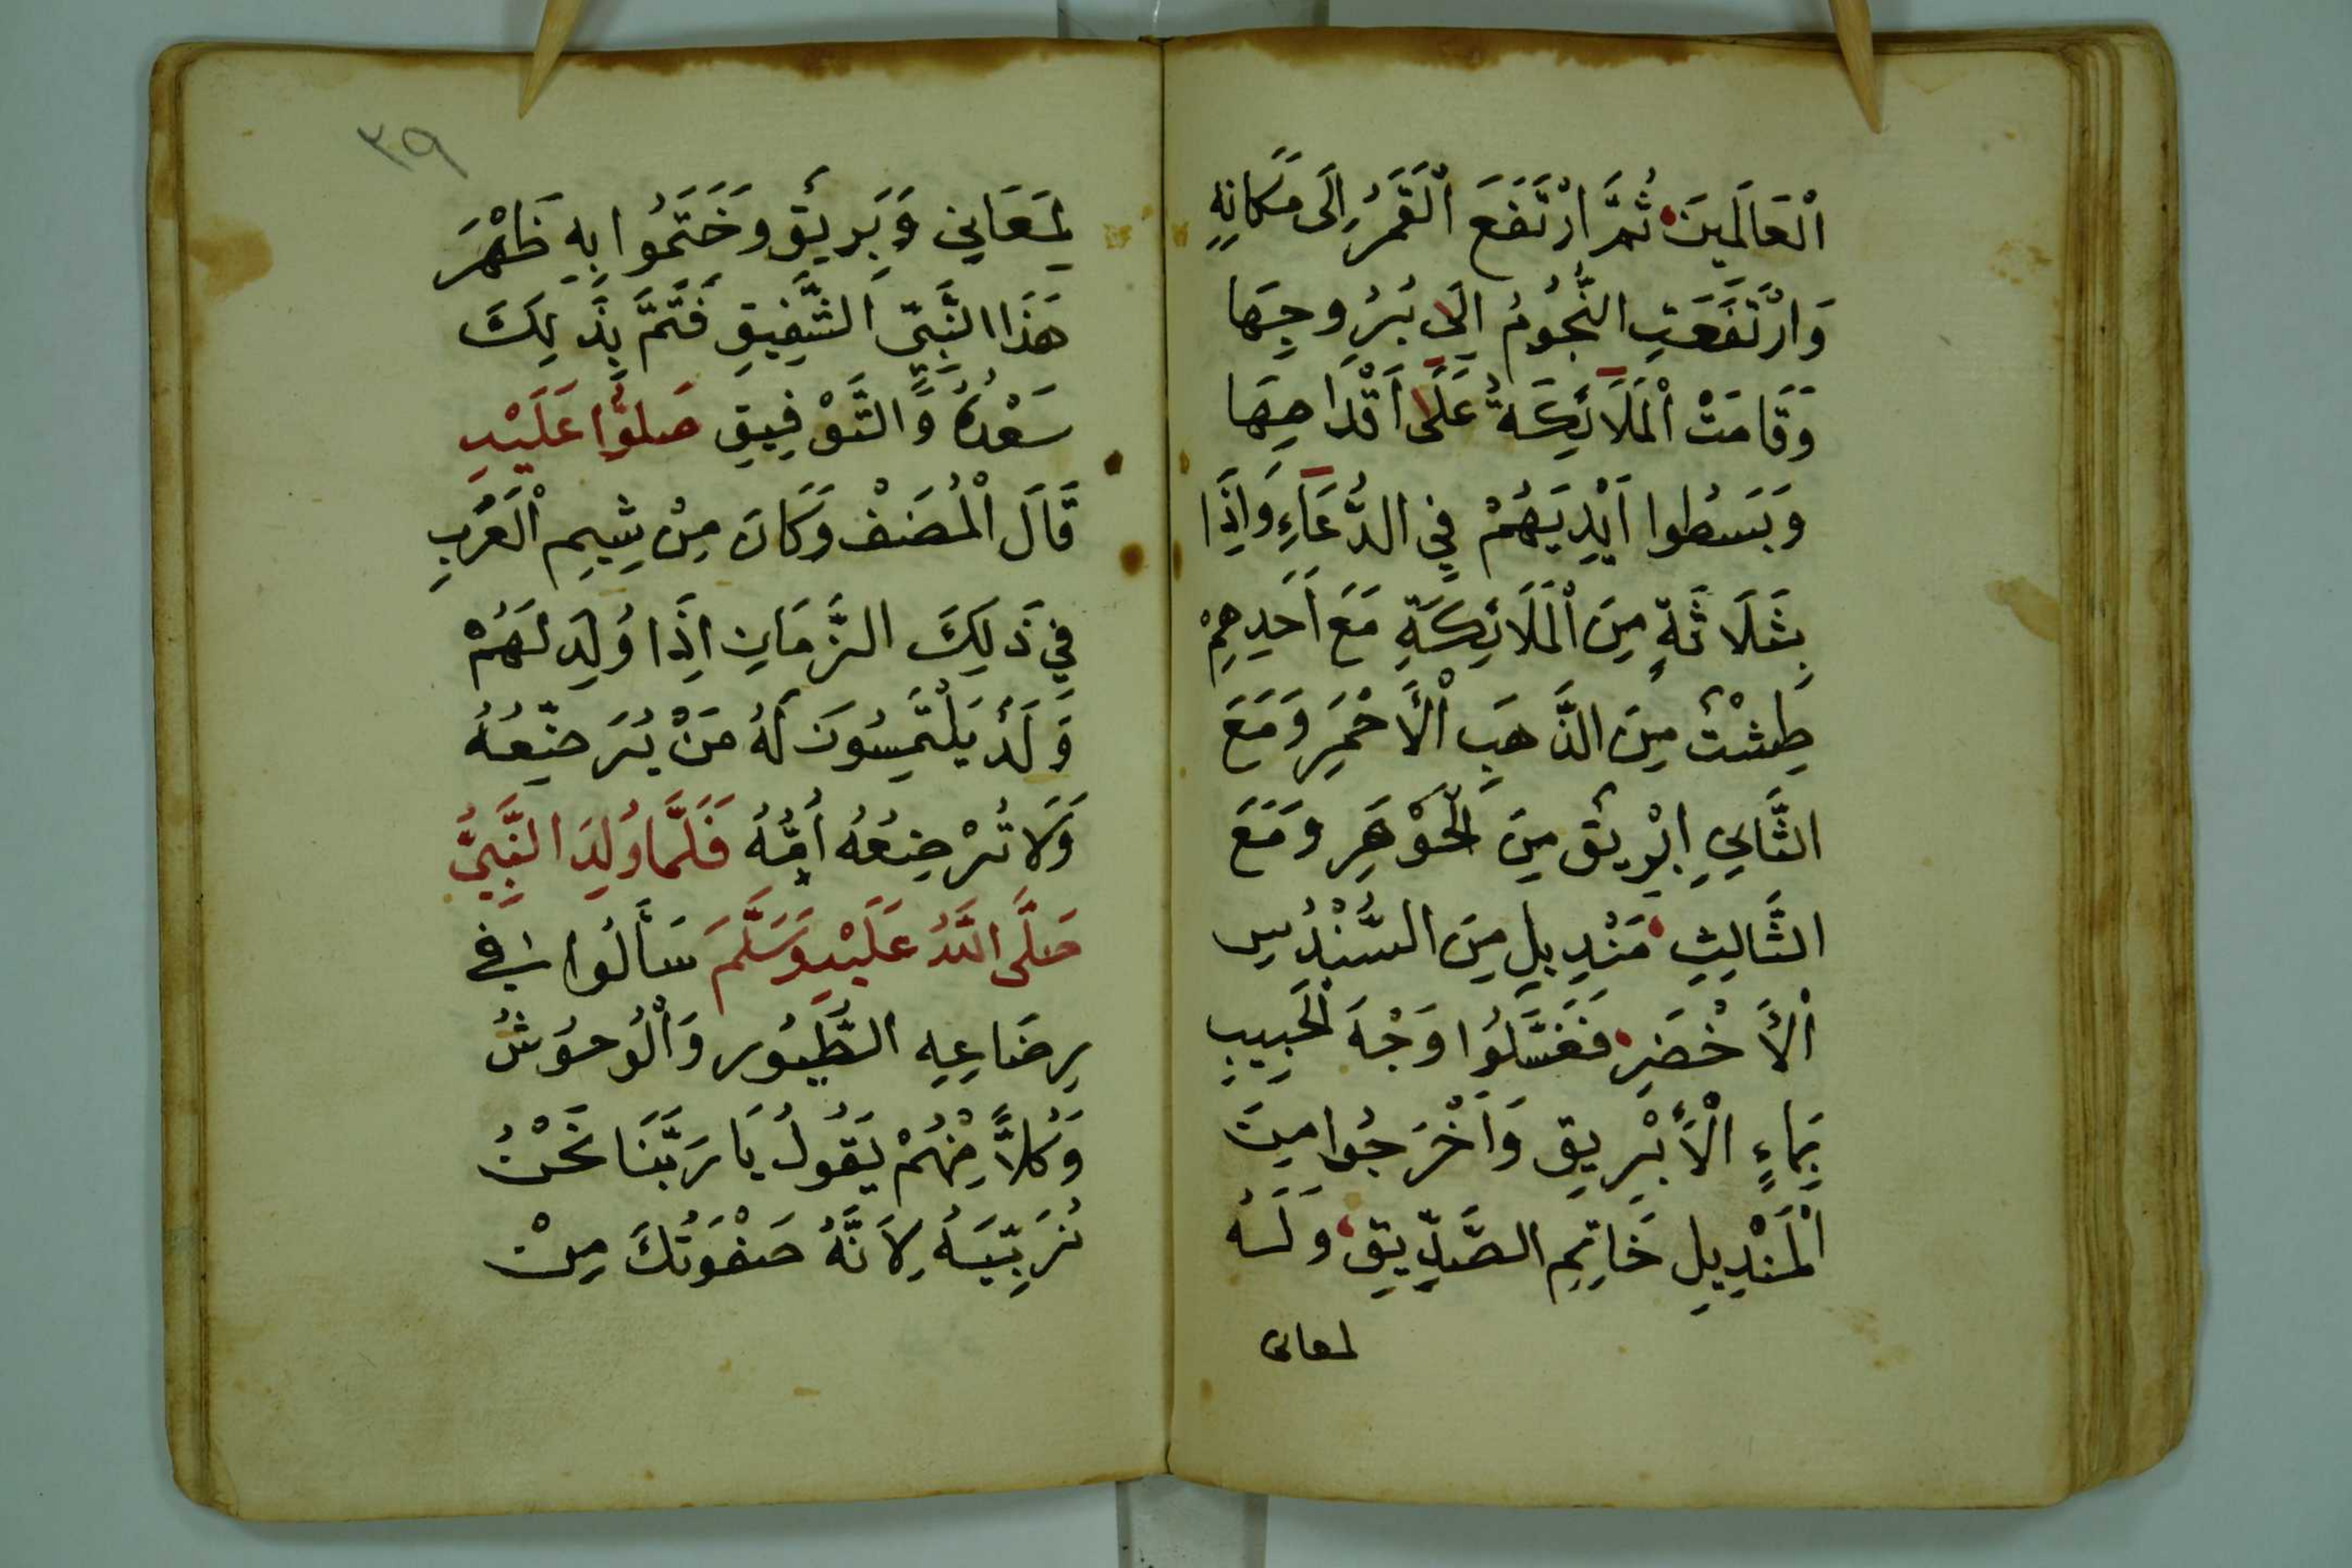 اَلْعَالَمِينَ ثُمَّ ارْتَفَعَ اَلْقَمَرُ اِلَى مَكَانِهِ
وَارْتَفَعَتِ النُّجُومُ اِلَى بُرُوجِهَا
وَقَامَتْ اَلْمَلَائِكَةُ عَلَى اَقْدَامِهَا
وَبَسَطُوا اَيْدِيَهُمْ فِي الدُّعَاءِ وَاِذَا
بِثَلَاثَةٍ مِنَ اَلْمَلَائِكَةِ مَعَ اَحَدِهِمْ
طِشْتٌ مِنَ الذَّهَبِ اَلْأَحْمَرِ وَمَعَ
الثَّانِي اِبْرِيْقٌ مِنَ الْجَوْهَرِ وَمَعَ
الثَّالِثِ مَنْدِيلِ مِنَ السُّنْدُسِ
اَلْأَخْضَرِ فَغَسَّلُوا وَجْهَ الْحَبِيبِ
بِمَاءٍ اَلْأَبْرِيقِ وَاَخْرَجُوا مِنَ
اَلْمَنْدِيلِ خَاتِمِ الصَّدِّيقِ وَلَهُ
لمعانى
٣٩
لَمَعَانِي وَبَرِيْقٌ وَخَتَمُوا بِهِ ظَهْرَ
هَذَا النَّبِيِّ الشَّفِيقِ فَتَمَّ بِذَلِكَ
سَعْدُهُ وَالتَّوْفِيقِ صَلُّوا عَلَيْهِ
قَالَ اَلْمُصَنْفْ وَكَانَ مِنْ شِيمِ اَلْعَرَبِ
فِي ذَلِكَ الزَّمَانِ اِذَا وُلِدَ لَهُمْ
وَلَدٌ يَلْتَمِسُونَ لَهُ مَنْ يُرَضِّعُهُ
وَلَا تُرْضِعُهُ اُمُّهُ فَلَمَّا وُلِدَ النَّبِيُّ
صَلَّى اللَّهُ عَلَيْهِ وَسَلَّمَ سَأَلُوا فِي
رِضَاعِهِ الطُّيُورِ وَاَلْوُحُوشُ
وَكُلًّا مِنْهُمْ يَقُولُ يَا رَبَّنَا نَحْنُ
نُرَبِّيَهُ لِاَنَّهُ صَفْوَتُكَ مِنْ